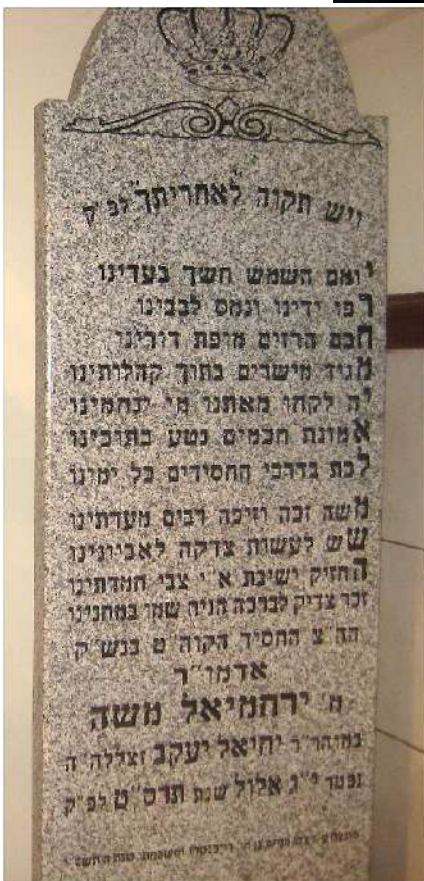 ויש תקוה לאחריתך לפ״ק
יואם השמש חשך בעדינו
רפו ידינו ונמס לבבינו
חכם הרזים מופת דורינו
מגיד מישרים בתוך קהלותינו
יה לקחו מאתנו מי ינחמינו
אמונת חכמים נטע בתוכינו
לכת בדרכי החסידים כל ימינו
משה זכה וזיכה רבים מעדתינו
שש לעשות צדקה לאביונינו
החזיק ישיבת א״י צבי חמדתינו
זכר צדיק לברכה הניח שמו במחנינו
הה״צ החסיד הקוה״ט בנש״ק
אדמו״ר
מ׳ ירחמיאל משה
במוהר״ר יחיאל יעקב זצללה״ה
נפטר י״ג אלול שנת תרס״ט לפ״ק